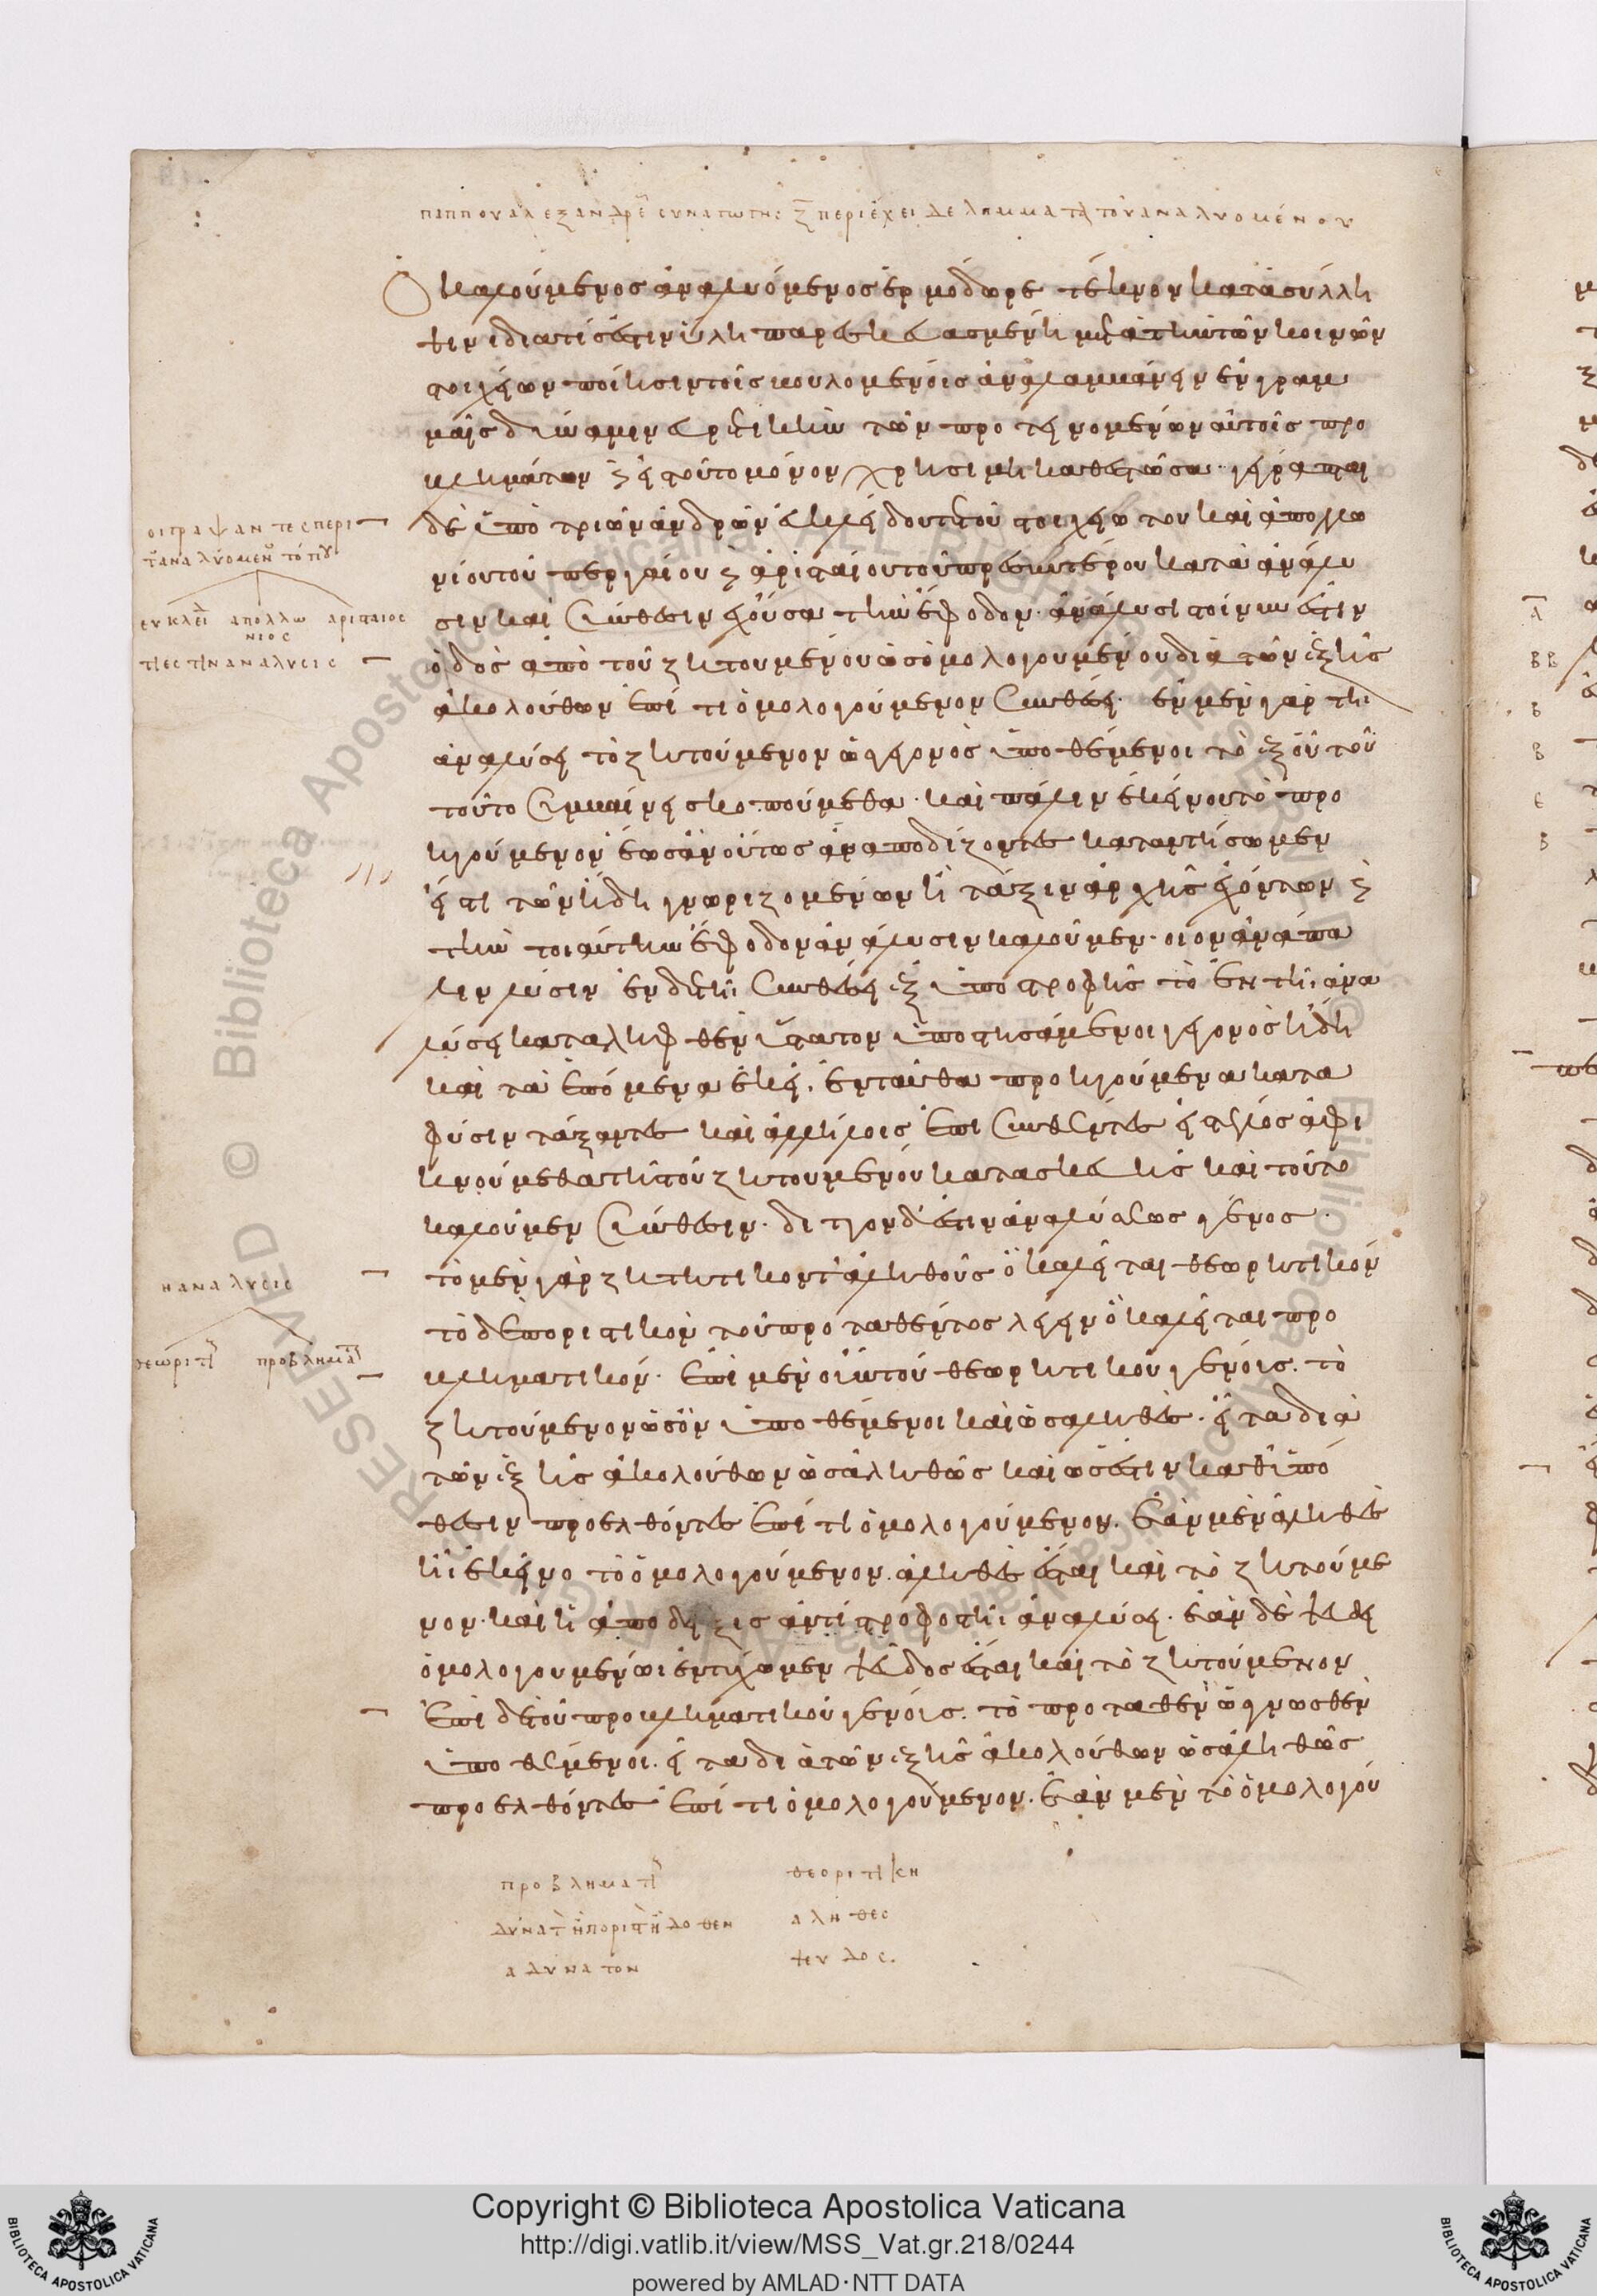 παππου αλεξανδρε συναγωγης ζ περιέχει δε λημματα του αναλυομένου
Ο καλούμενος ἀναλυόμενος ἑρμόδωρε τέκνον κατὰ σύλλη
ψιν ιδία τίς ἐστιν ὕλη παρεσκευασμένη μετὰ τὴν τῶν κοινῶν
στοιχείων ποίησιν τοῖς βουλομένοις ἀναλαμβάνειν ἐν γραμ
μαῖς δύναμιν εὑρετικὴν τῶν προτεινομένων αὐτοῖς προ
βλημάτων καὶ εἰς τοῦτο μόνον χρησίμη καθεστῶσα· γέγραπται
δὲ ὑπὸ τριῶν ἀνδρῶν εὐκλείδου τε τοῦ στοιχειωτοῦ καὶ ἀπολλω
νίου τοῦ περγαίου καὶ ἀρισταίου τοῦ πρεσβυτέρου κατὰ ἀνάλυ
σιν καὶ σύνθεσιν ἔχουσα τὴν ἔφοδον· ἀνάλυσις τοίνυν ἐστὶν
ὁδὸς ἀπὸ τοῦ ζητουμένου ὡς ὁμολογουμένου διὰ τῶν ἑξῆς
ἀκολούθων ἐπί τι ὁμολογούμενον συνθέσει· ἐν μὲν γὰρ τῆι
ἀναλύσει τὸ ζητούμενον ὡς γεγονὸς ὑποθέμενοι τὸ ἐξ οὗ τοῦ
τοῦτο συμβαίνει σκοπούμεθα· καὶ πάλιν ἐκείνου τὸ προ
ηγούμενον ἕως ἂν οὕτως ἀναποδίζοντες καταντήσωμεν
εἴς τι τῶν ἤδη γνωριζομένων ἢ τάξιν ἀρχῆς ἐχόντων καὶ
τὴν τοιαύτην ἔφοδον ἀνάλυσιν καλοῦμεν· οἷον ἀνάπα
λιν λύσιν ἐν δὲ τῆι συνθέσει ἐξ ὑποστροφῆς τὸ ἐν τῆι ἀνα
λύσει καταληφθὲν ὕστατον ὑποστησάμενοι γεγονὸς ἤδη
καὶ τὰ ἑπόμενα ἐκεῖ ἐνταῦθα προηγούμενα κατὰ
φύσιν τάξαντες καὶ ἀλλήλοις ἐπισυνθέντες εἰς τέλος ἀφι
κνούμεθα τῆς τοῦ ζητουμένου κατασκευῆς καὶ τοῦτο
καλοῦμεν σύνθεσιν· διττὸν δ' ἐστὶν ἀναλύσεως γένος·
τὸ μὲν γὰρ ζητητικὸν τἀληθοῦς ὃ καλεῖται θεωρητικόν
τὸ δὲ ποριστικὸν τοῦ προταθέντος λέγειν ὃ καλεῖται προ
βληματικόν· ἐπὶ μὲν οὖν τοῦ θεωρητικοῦ γένους· τὸ
ζητούμενον ὡς ὂν ὑποθέμενοι καὶ ὡς ἀληθές· εἶτα διὰ
τῶν ἑξῆς ἀκολούθων ὡς ἀληθῶς καὶ ὡς ἔστιν καθ' ὑπό
θεσιν προελθόντες ἐπί τι ὁμολογούμενον· ἐὰν μὲν ἀληθὲς
ἦι ἐκεῖνο τὸ ὁμολογούμενον· ἀληθὲς ἔσται καὶ τὸ ζητούμε
νον· καὶ ἡ ἀπόδειξις ἀντίστροφος τῆι ἀναλύσει· ἐὰν δὲ ψεύδει
ὁμολογουμένωι ἐντύχωμεν ψεῦδος ἔσται καὶ τὸ ζητούμενον
Ἐπὶ δὲ τοῦ προβληματικοῦ γένους· τὸ προταθὲν ὡς γνωσθὲν
ὑποθέμενοι· εἶτα διὰ τῶν ἑξῆς ἀκολούθων ὡς ἀληθῶς
προελθόντες ἐπί τι ὁμολογούμενον· ἐὰν μὲν τὸ ὁμολογού
οι γραψαντες περι
τ αναλυομεν τόπου
ευκλει απολλω αρισταιος
νιος
τι εστιν αναλυσις
η αναλυσις
θεωρητι προβληματι
προβληματι θεοριτικη
δυνατ η πορισ η δοθεν αληθες
αδυνατον ψευδος.
Copyright © Biblioteca Apostolica Vaticana
http://digi.vatlib.it/view/MSS_Vat.gr.218/0244
powered by AMLAD·NTT DATA
BIBLIOTECA APOSTOLICA VATICANA
BIBLIOTECA APOSTOLICA VATICANA